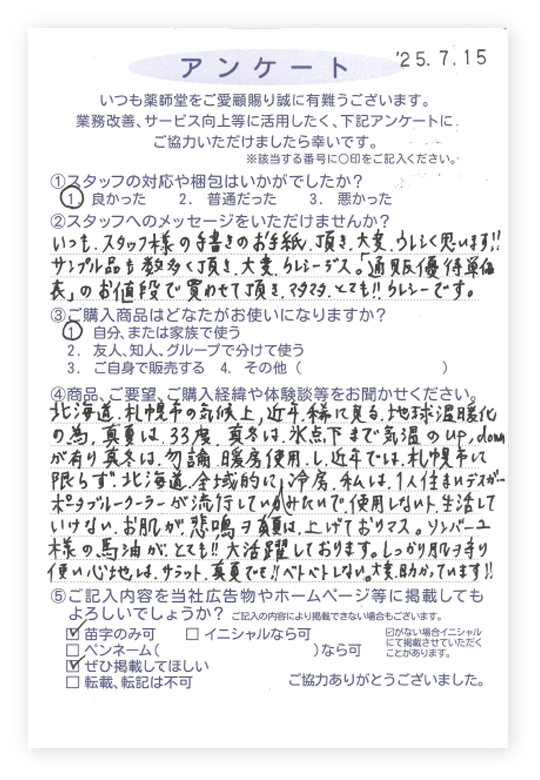 '25.7.15
アンケート
いつも薬師堂をご愛顧賜り誠に有難うございます。
業務改善、サービス向上等に活用したく、下記アンケートに
ご協力いただけましたら幸いです。
※該当する番号に〇印をご記入ください。
①スタッフの対応や梱包はいかがでしたか？
1. 良かった 2. 普通だった 3. 悪かった
②スタッフへのメッセージをいただけませんか？
いつも、スタッフ様の手書きのお手紙、頂き、大変、うれしく思います!!
サンプル品も数多く頂き、大変、うレシーデス。「通販優待単価
表」のお値段で買わせて頂き、マタマタ、とても!!うレシーです。
③ご購入商品はどなたがお使いになりますか？
1 自分、または家族で使う
2. 友人、知人、グループで分けて使う
3. ご自身で販売する 4. その他（ ）
④商品、ご要望、ご購入経緯や体験談等をお聞かせください。
北海道、札幌市の気候上、近年、稀に見る、地球温暖化
の為、真夏は、33度、真冬は、氷点下まで気温のup,down
が有り真冬は、勿論、暖房使用、し、近年では、札幌市に
限らず、北海道、全域的に、冷房、私は、1人住まいデスガー
ポータブルークーラーが流行しているみたいで、使用しないト、生活して
いけない、お肌が、悲鳴ヲ真夏は、上げておりマス。ソンバーユ
様の馬油が、とても!!大活躍しております。しっかり肌ヲ守り
使い心地は、サラット、真夏でモ!!ベトベトしない。大変、助かっています!!
⑤ご記入内容を当社広告物やホームページ等に掲載しても
よろしいでしょうか？ ご記入の内容により掲載できない場合もございます。
☑苗字のみ可 □イニシャルなら可
☑がない場合イニシャル
にて掲載させていただく
ことがあります。
□ペンネーム（ ）なら可
☑ぜひ掲載してほしい
□転載、転記は不可
ご協力ありがとうございました。